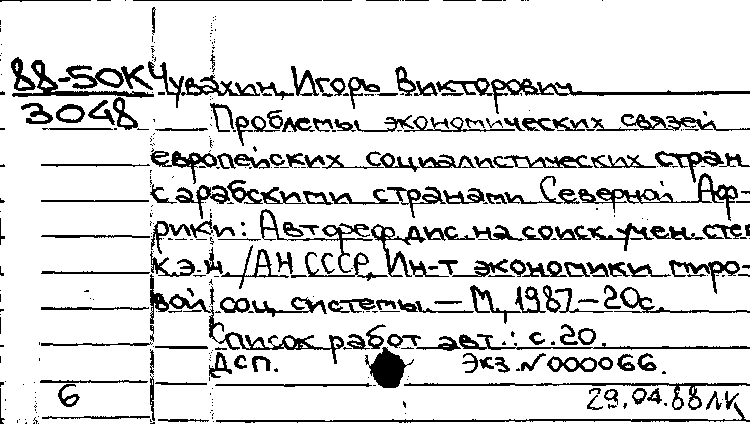 88-50К Чувахин, Игорь Викторович
3048 Проблемы экономических связей
европейских социалистических стран
с арабскими странами Северной Аф-
рики: Автореф. дис. на соиск. учен. степ
к.э.н. /АН СССР, Ин-т экономики миро-
вой соц. системы. — М., 1987. — 20с.
Список работ авт.: с.20.
ДСП. Экз. N 000066.
6 29.04.88 ЛК